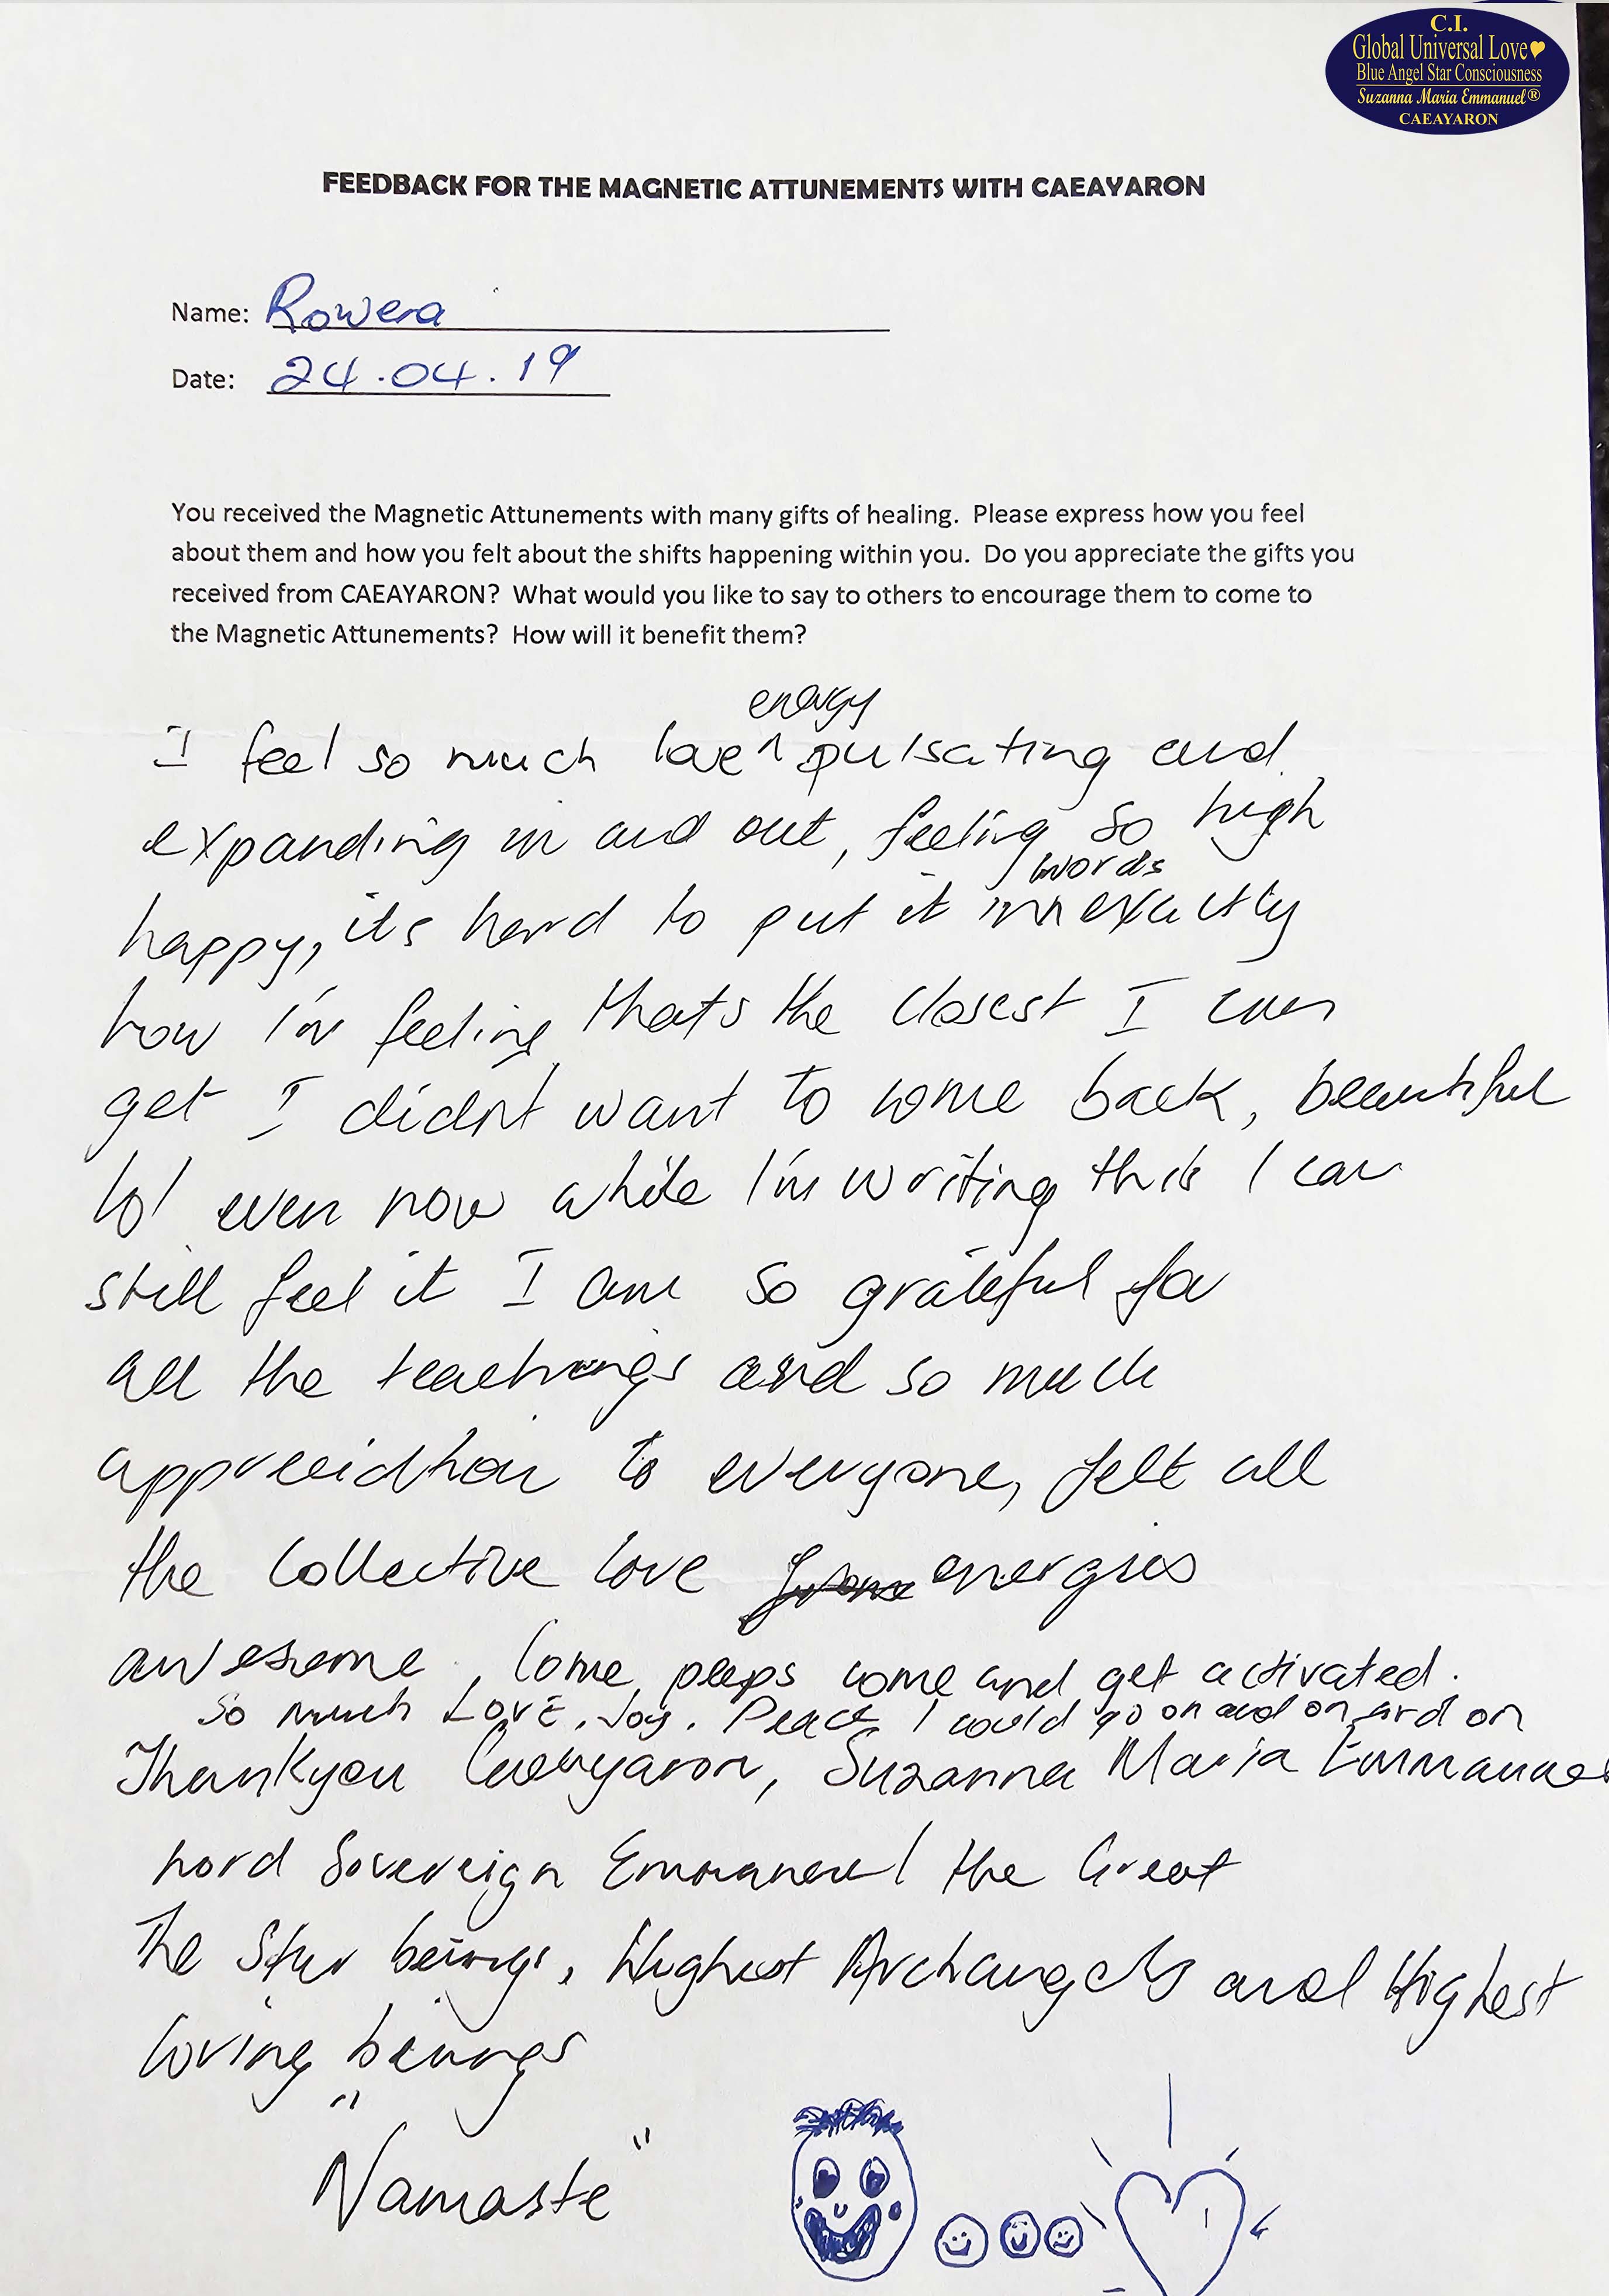 C.I.
Global Universal Love
Blue Angel Star Consciousness
Suzanna Maria Emmanuel®
CAEAYARON
FEEDBACK FOR THE MAGNETIC ATTUNEMENTS WITH CAEAYARON
Name: Rowera
Date: 24.04.19
You received the Magnetic Attunements with many gifts of healing. Please express how you feel
about them and how you felt about the shifts happening within you. Do you appreciate the gifts you
received from CAEAYARON? What would you like to say to others to encourage them to come to
the Magnetic Attunements? How will it benefit them?
energy
I feel so much love ^ pulsating and
expanding in and out, feeling so high
words
happy, its hard to put it in exactly
how I'm feeling thats the closest I can
get I didn't want to come back, beautiful
lol even now while I'm writing this I can
still feel it I am so grateful for
all the teachings and so much
appreciation to everyone, felt all
the Collective love energies
awesome, Come peeps come and get activated.
So much Love, Joy, Peace I could go on and on and on
Thankyou Caeayaron, Suzanna Maria Emmanuel
Lord Sovereign Emmanuel the Great
The Star beings, Highest Archangels and Highest
loving beings
"Namaste"